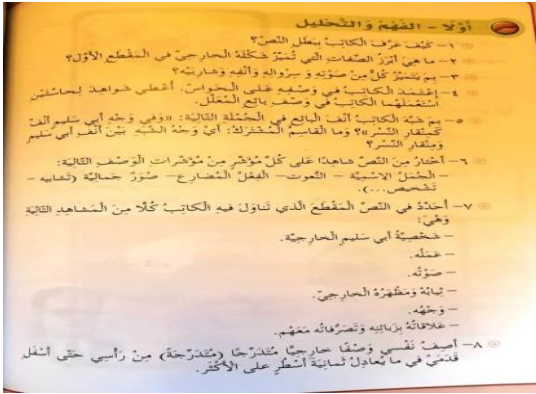 أَوَّلًا - الفَهْمُ وَالتَّحْلِيلُ
١- كَيْفَ عَرَّفَ الْكَاتِبُ بِبَطَلِ النَّصِّ؟
٢- ما هِيَ أَبْرَزُ الصِّفاتِ الَّتي تُمَيِّزُ شَكْلَهُ الْخارِجيَّ في الْمَقْطَعِ الأَوَّلِ؟
٣- بِمَ يَتَمَيَّزُ كُلٌّ مِنْ صَوْتِهِ وَسِرْوالِهِ وَأَنْفِهِ وَشارِبَيْهِ؟
٤- إِعْتَمَدَ الْكاتِبُ في وَصْفِهِ عَلى الْحَواسِّ، أَعْطي شَواهِدَ لِحاسَّتَيْنِ
اسْتَعْمَلَهُما الْكاتِبُ في وَصْفِ بائِعِ الْمُعَلَّلِ.
٥- بِمَ شَبَّهَ الْكاتِبُ أَنْفَ الْبائِعِ في الْجُمْلَةِ التّالِيَةِ: «وَفي وَجْهِ أَبي سَليمٍ أَنْفٌ
كَمِنْقارِ النَّسْرِ»؟ وَما الْقاسِمُ الْمُشْتَرَكُ: أَيْ وَجْهُ الشَّبَهِ بَيْنَ أَنْفِ أَبي سَليمٍ
وَمِنْقارِ النَّسْرِ؟
٦- أَخْتارُ مِنَ النَّصِّ شاهِدًا عَلى كُلِّ مُؤَشِّرٍ مِنْ مُؤَشِّراتِ الْوَصْفِ التّالِيَةِ:
- الْجُمَلُ الاِسْمِيَّةُ - النُّعوتُ - الْفِعْلُ الْمُضارِعُ - صُوَرٌ جَمالِيَّةٌ (تَشابيه -
تَشْخيص...).
٧- أُحَدِّدُ في النَّصِّ الْمَقْطَعَ الَّذي تَناوَلَ فيهِ الْكاتِبُ كُلًّا مِنَ الْمَشاهِدِ التّالِيَةِ
وَهِيَ:
- شَخْصِيَّةُ أَبي سَليمٍ الْخارِجِيَّةُ.
- عَمَلُه.
- صَوْتُه.
- ثِيابُهُ وَمَظْهَرُهُ الْخارِجيّ.
- وَجْهُه.
- عَلاقاتُهُ بِزَبائِنِهِ وَتَصَرُّفاتُهُ مَعَهُم.
٨- أَصِفُ نَفْسي وَصْفًا خارِجِيًّا مُتَدَرِّجًا (مُتَدَرِّجَةً) مِنْ رَأْسي حَتّى أَسْفَلِ
قَدَمَيَّ في ما يُعادِلُ ثَمانِيَةَ أَسْطُرٍ عَلى الأَكْثَرِ.